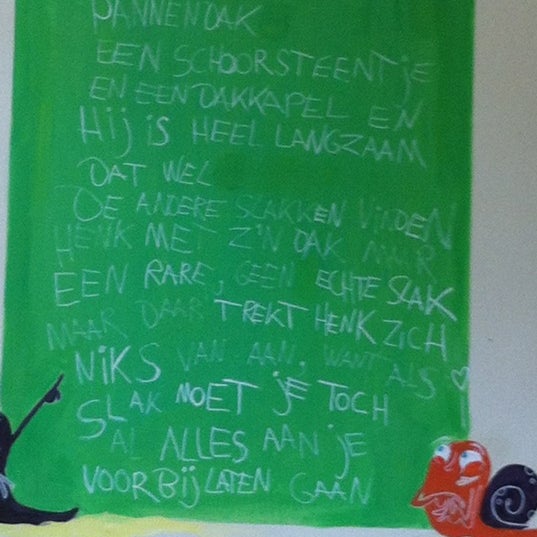 PANNENDAK
EEN SCHOORSTEENTJE
EN EEN DAKKAPEL EN
HIJ iS HEEL LANGZAAM
DAT WEL
DE ANDERE SLAKKEN VINDEN
HENK MET Z'N DAK MAAR
EEN RARE, GEEN ECHTE SLAK
MAAR DAAR TREKT HENK ZICH
NIKS VAN AAN, WANT ALS
SLAK MOET JE TOCH
AL ALLES AAN JE
VOORBIJ LATEN GAAN